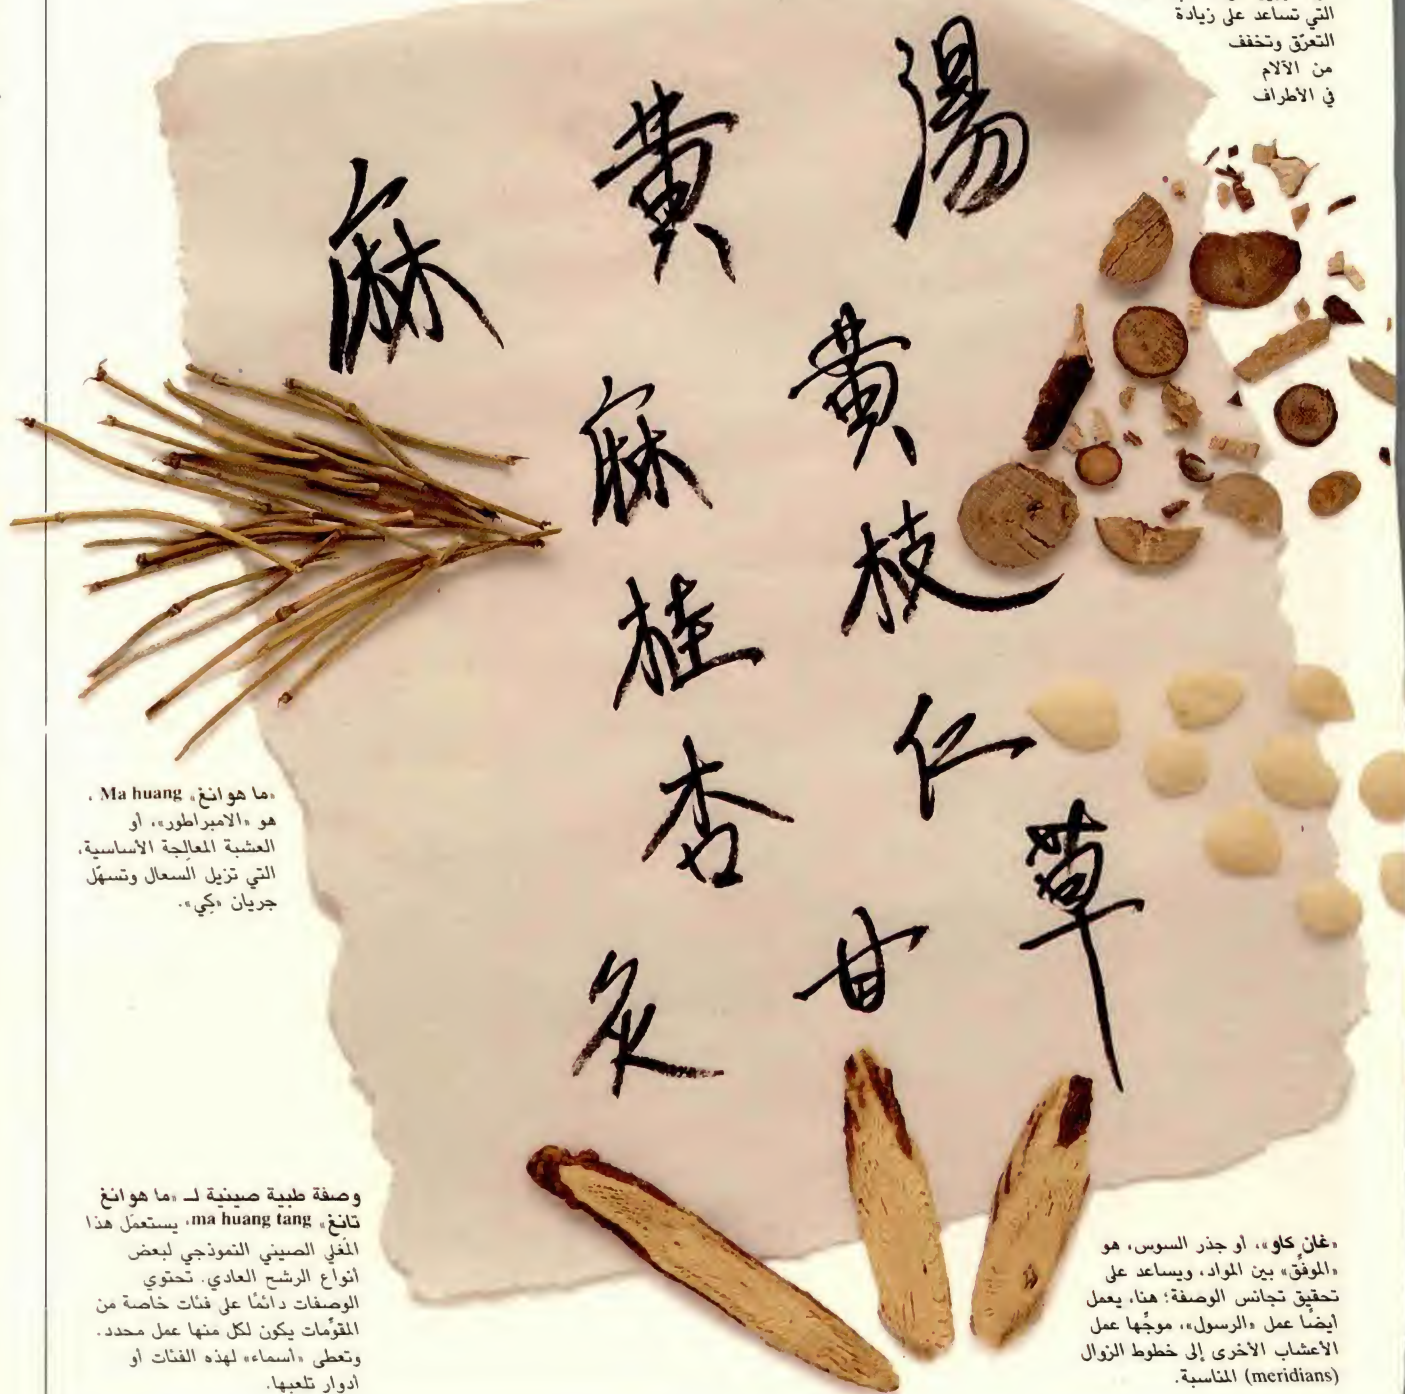 التي تساعد على زيادة
التعرّق وتخفف
من الآلام
في الأطراف
麻黃湯
麻黃
桂枝
杏仁
炙甘草
«ما هوانغ» Ma huang،
هو «الامبراطور»، أو
العشبة المعالِجة الأساسية،
التي تزيل السعال وتسهّل
جريان «كِي».
وصفة طبية صينية لـ «ما هوانغ
تانغ» ma huang tang، يستعمَل هذا
المَغلي الصيني النموذجي لبعض
أنواع الرشح العادي. تحتوي
الوصفات دائمًا على فئات خاصة من
المقوِّمات يكون لكل منها عمل محدد.
وتعطى «أسماء» لهذه الفئات أو
أدوار تلعبها.
«غان كاو»، أو جذر السوس، هو
«الموفِّق» بين المواد، ويساعد على
تحقيق تجانس الوصفة؛ هنا، يعمل
أيضًا عمل «الرسول»، موجِّها عمل
الأعشاب الأخرى إلى خطوط الزوال
(meridians) المناسبة.